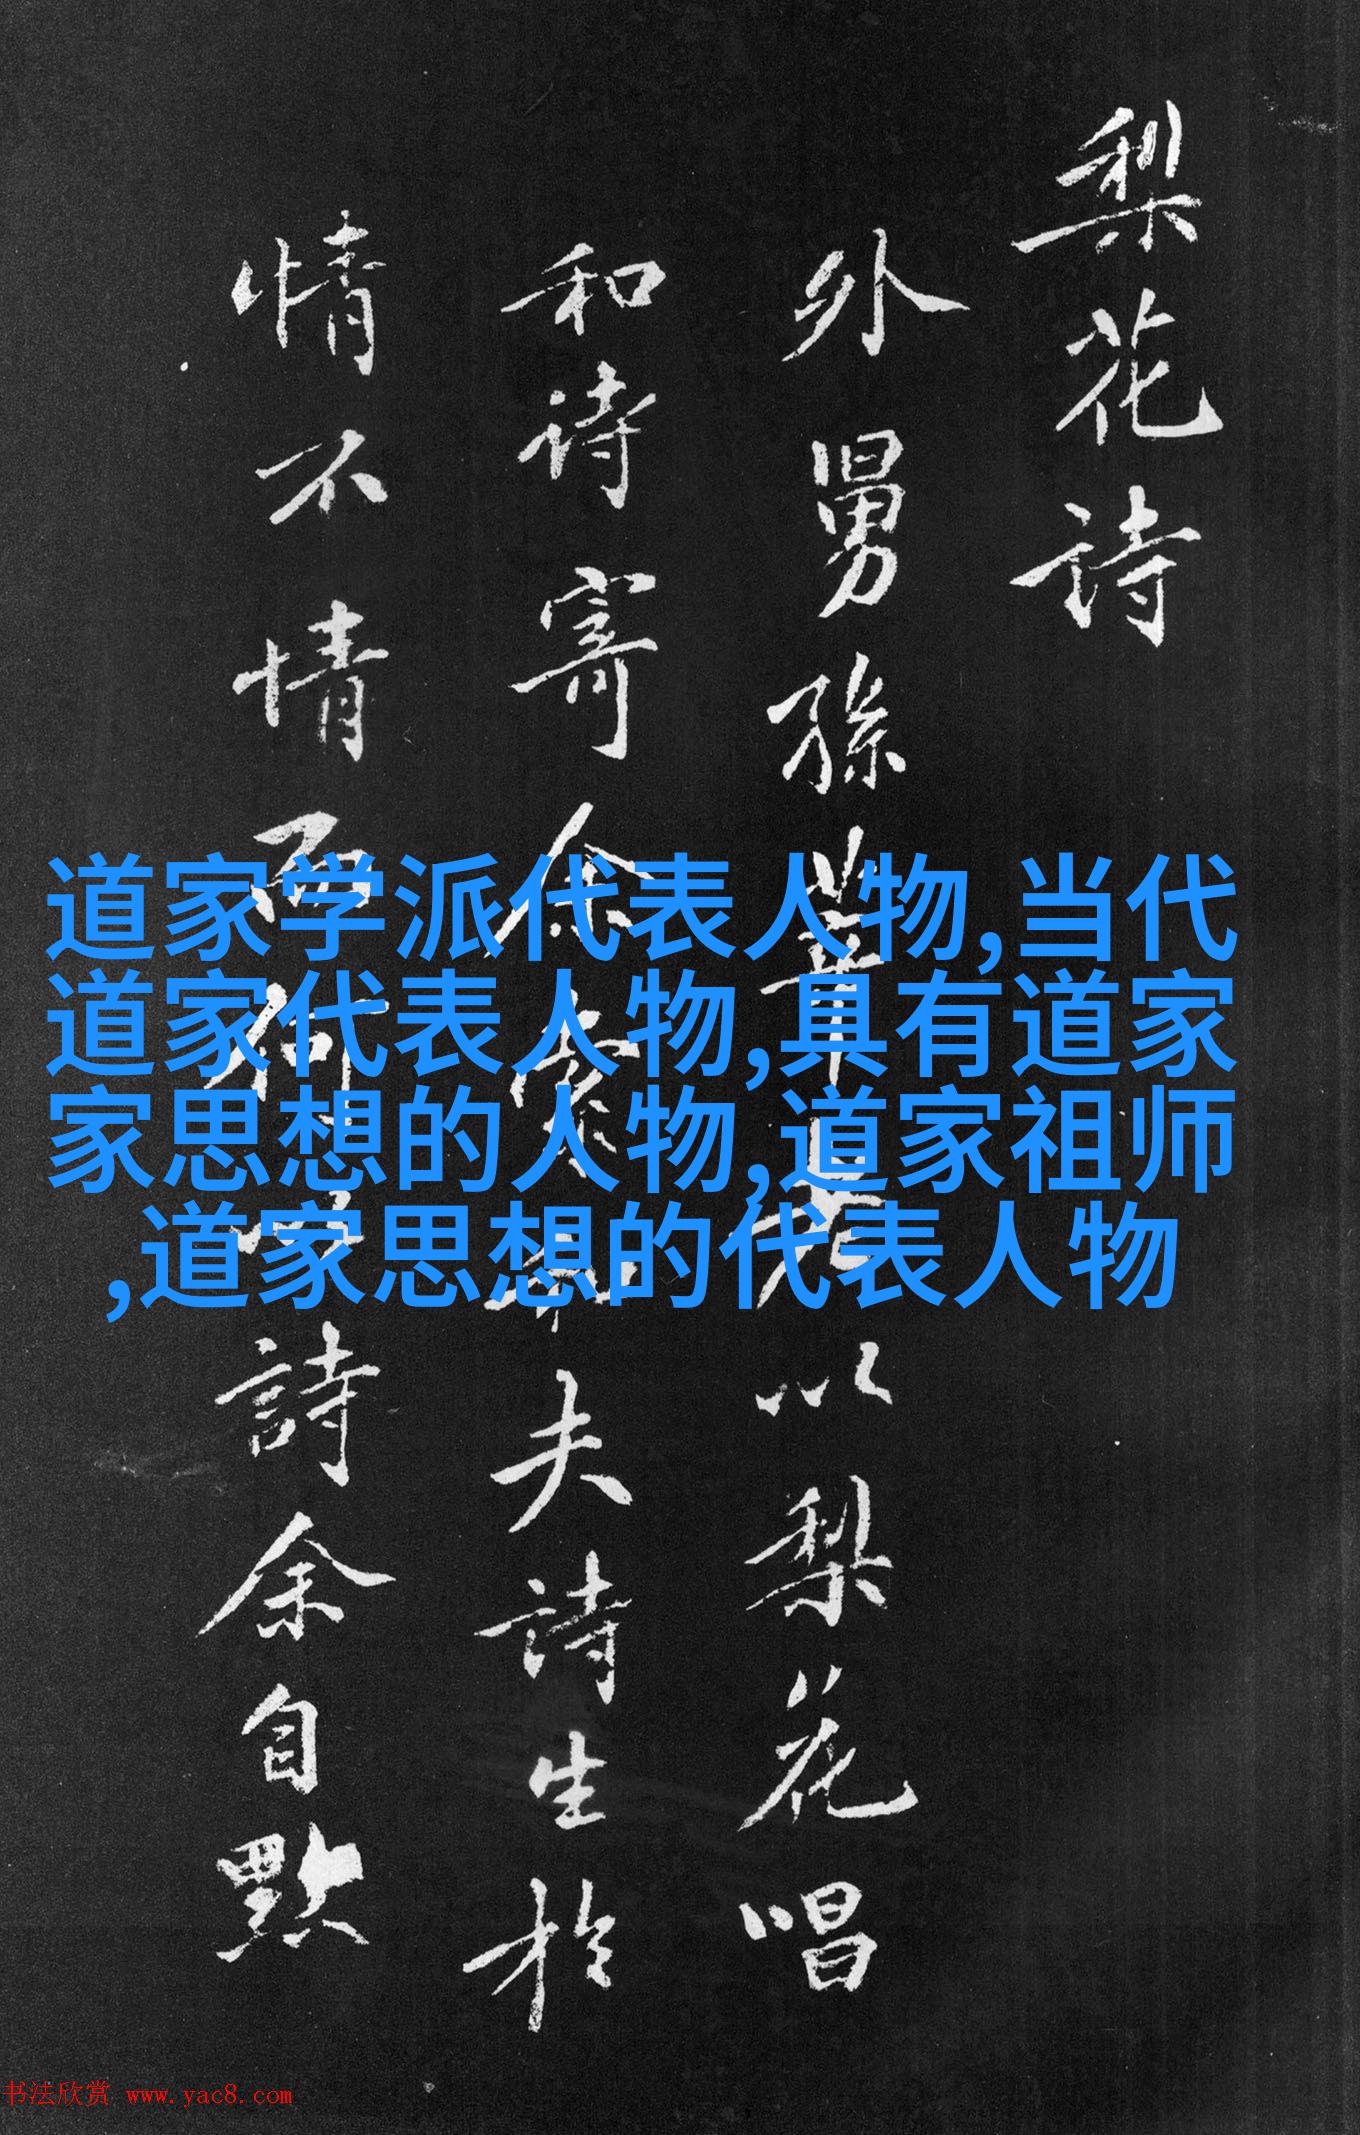 梨花詩
外舅孫莘老以梨花唱
和诗寄余索和夫詩生於
情不情而何以詩余自點
道家学派代表人物,当代
道家代表人物,具有道家
家思想的人物,道家祖师
,道家思想的代表人物
书法欣赏 www.yac8.com